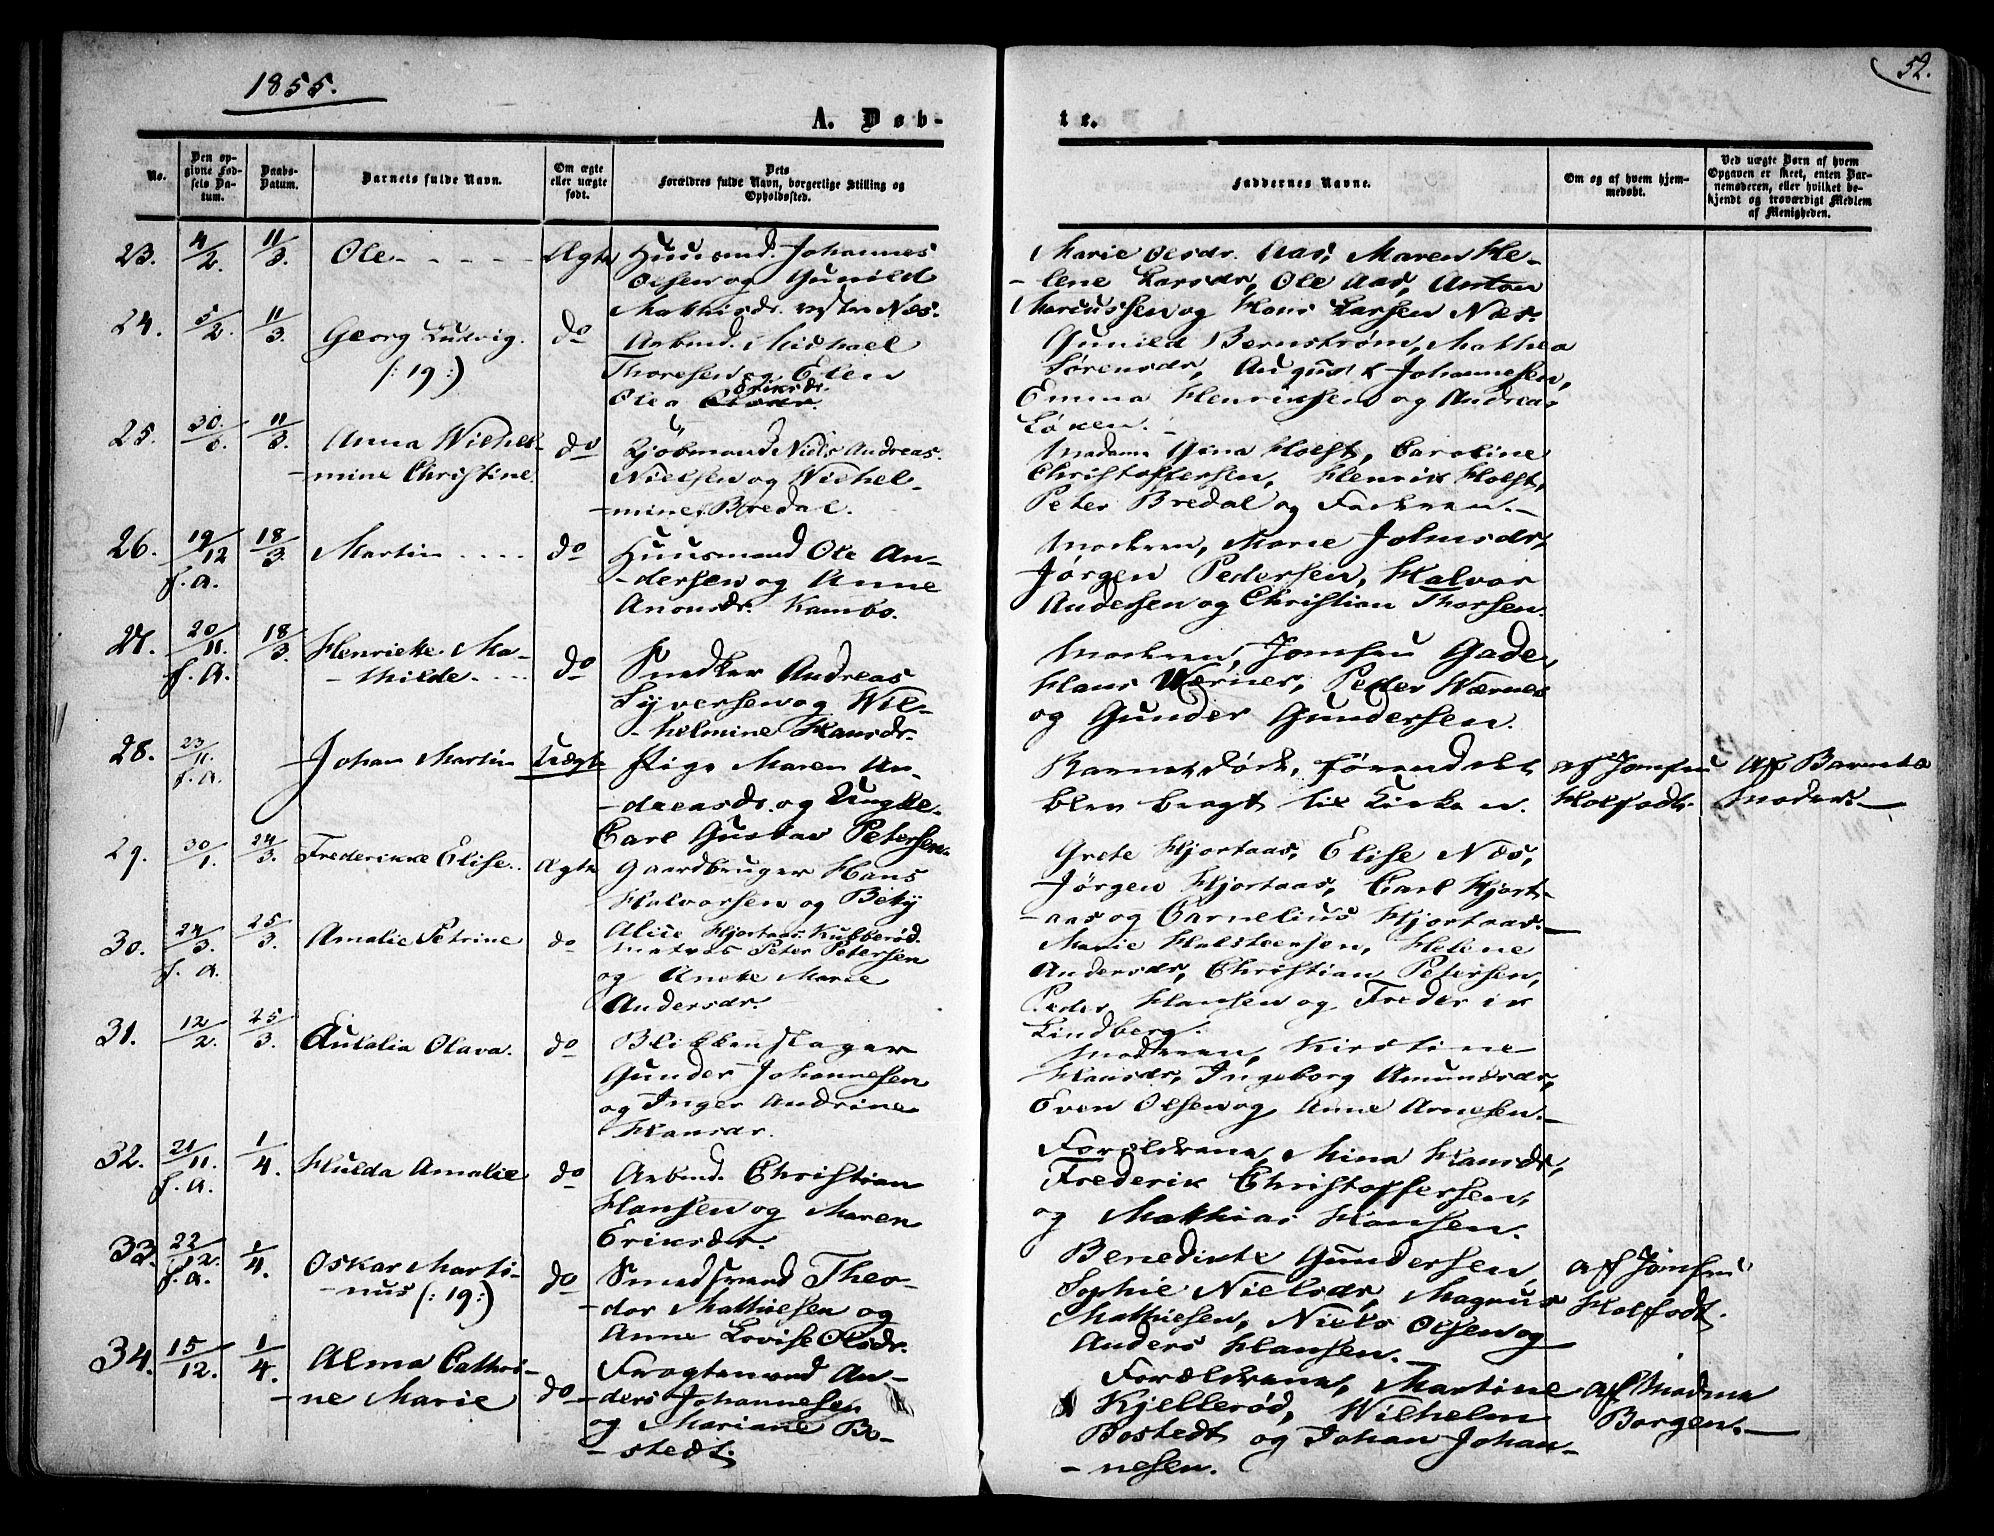 1855.
52.
A. Døb-
te.
No.
Den op-
givne Fød-
sels Da-
tum.
Daabs-
Datum.
Barnets fulde Navn.
Om ægte
eller uægte
født.
Dets
Forældres fulde Navn, borgerlige Stilling og
Opholdssted.
Faddernes Navne.
Om og af hvem hjem-
medøbt.
Ved uægte Børn af hvem
Opgaven er skeet, enten Bar-
nemoderen, eller hvilket be-
kjendt og troværdigt Medlem
af Menigheden.
23. 4/2. 11/3. Ole - - - - - Ægte Huusmd. Johannes
Olsen og Gunild
Mathisdr. vestre Næs.
Marie Olsdr. Aas, Maren He-
-lene Larsdr, Ole Aas, Anton
Mariussen og Hans Larsen Næs.
24. 5/2. 11/3. Georg Ludvig.
(: 19 :)
do Arbmd. Michael
Thoresen og Elen
Olea Eriksdr.
Gunild Bernstrøm, Mathea
Sørensdr, August Johannesen,
Emma Henriksen og Andreas
Løken. -
25. 30. 11/3. Anna Wilhel-
-mine Christine.
do Kjøbmand Niels Andreas
Nielsen og Wilhel-
-mine Bredal.
Madame Gina Holst, Caroline
Christoffersen, Henrik Holst,
Peter Bredal og Faderen. -
26. 19/12 f. a. 18/3. Martin - - - - do Huusmand Ole An-
-dersen og Anne
Aronsdr. Kambo.
Moderen, Marie Johnsdr,
Jørgen Pedersen, Halvor
Andersen og Christian Thorsen.
27. 20/11. f. a. 18/3. Henriette Ma-
- thilde. - - -
do Snedker Andreas
Syversen og Wil-
- helmine Hansdr.
Moderen, Jomfru Gade,
Hans Værner, Peder Værner
og Gunder Gundersen.
28. 23/11. f. a. Johan Martin Uægte Pige Maren An-
-dreasdr. og Ungke.
Carl Gustav Petersen.
Barnet døde, førend det
blev bragt til Kirken.
af Jomfru
Holfodt.
Af Barnets
Moder. -
29. 30/1. 24/3. Frederikke Elise.. Ægte Gaardbruger Hans
Halvorsen og Betzy
Alice Hjortaas Kubberød.
Grete Hjortaas, Elise Næs,
Jørgen Hjortaas, Carl Hjort-
-aas og Cornelius Hjortaas. -
30. 24/3. f. a. 25/3. Amalie Petrine do Matros Peter Petersen
og Anette Marie
Andersdr.
Marie Halsteensen, Helene
Andersdr, Christian Petersen,
Peder Hansen og Frederik
Lindberg.
31. 12/2. 25/3. Eulalia Olava. do Blikkenslager
Gunder Johannesen
og Inger Andrine
Hansdr.
Moderen, Kirstine
Hansdr, Ingeborg Amundsdr,
Even Olsen og Anne Arnesen. -
32. 21/11. f. a. 1/4. Hulda Amalie do Arbmd. Christian
Hansen og Maren
Eriksdr.
Forældrene, Mina Hansdr,
Frederik Christoffersen,
og Mathias Hansen.
33. 22/12. f. a. 1/4. Oskar Marti-
-nus (: 19 :)
do Smedsvend Theo-
-dor Mathiesen og
Anne Lovise Olsdr.
Benedicte Gundersen,
Sophie Nielsdr, Magnus
Mathiesen, Niels Olsen og
Anders Hansen. -
af Jomfru
Holfodt.
34. 15/12. 1/4. Alma Cathri-
-ne Marie
do Fragtemand An-
-ders Johannesen
og Mariane Bo-
-stedt.
Forældrene, Martine
Kjellerød, Wilhelm
Bostedt og Johan Johan-
- nesen.
af Madme
Borgen. -